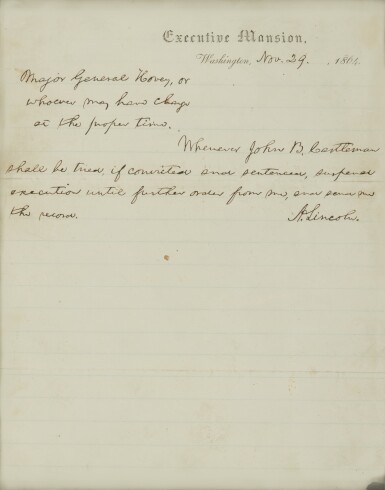 Executive Mansion,
Washington, Nov. 29, 1864.
Major General Hovey, or
whoever may have charge
at the proper time.
Whenever John B. Castleman
shall be tried, if convicted and sentenced, suspend
execution until further order from me, and send me
the record.
A. Lincoln.